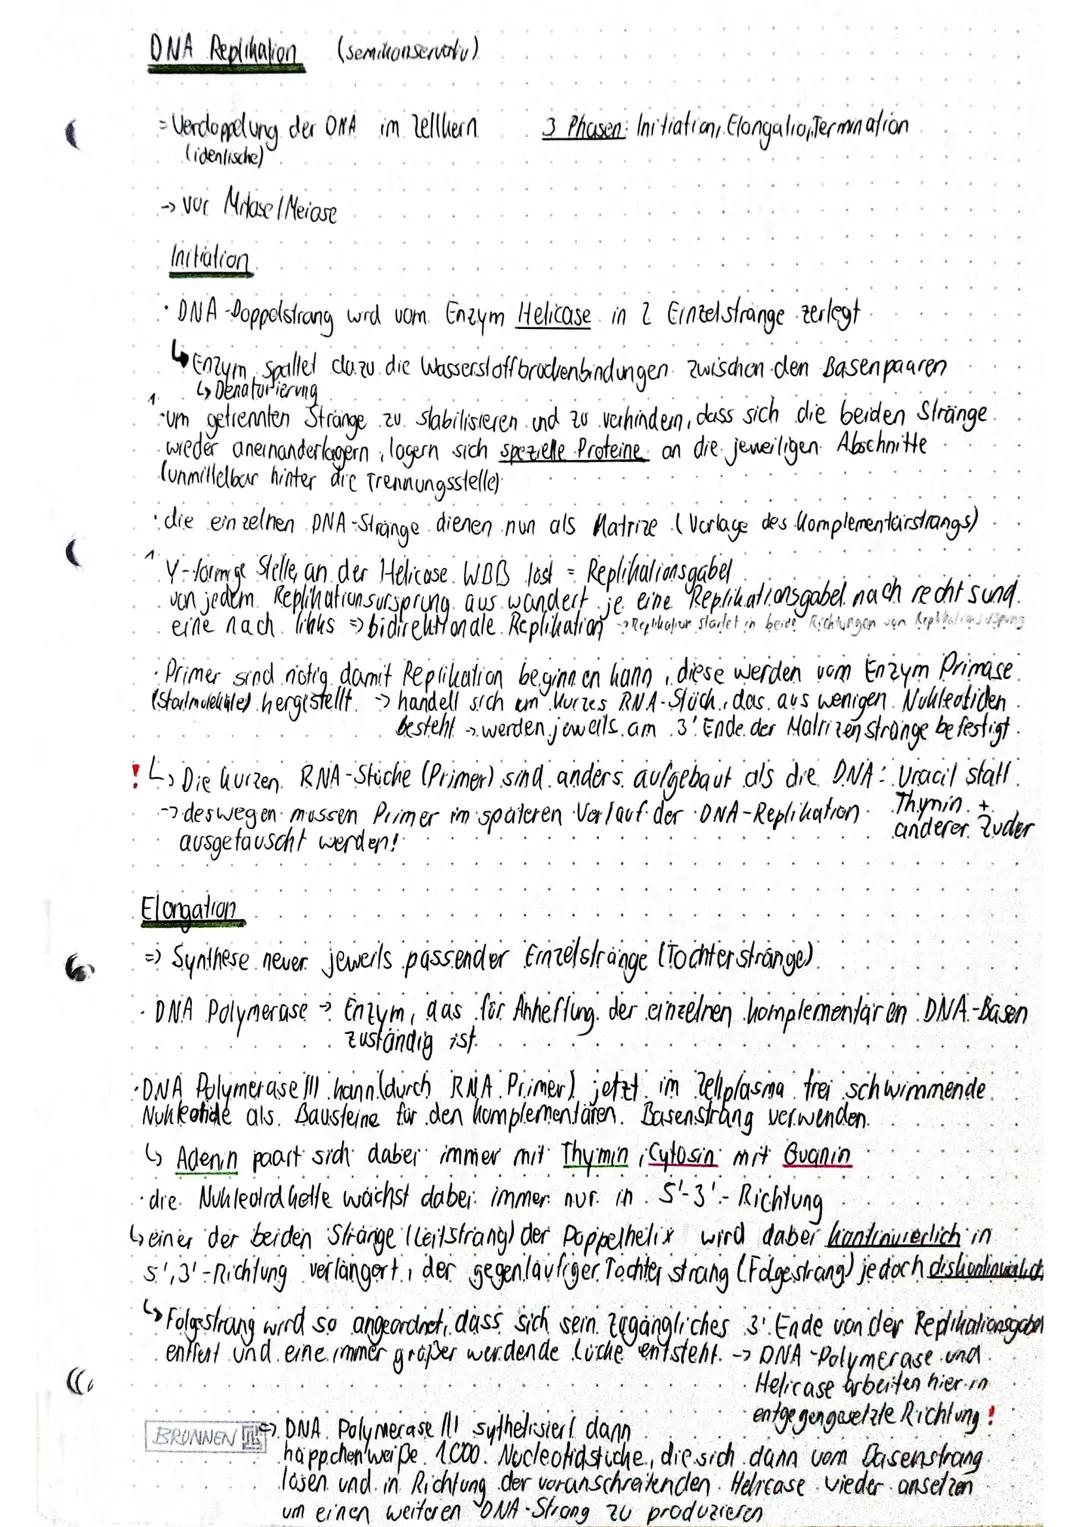 DNA Replikation (semikonservativ)
= Verdoppelung der DNA im Zellkern 3 Phasen: Initiation, Elongation, Termination
(identische)
-> vor Mitose/Meiose
Initiation
· DNA-Doppelstrang wird vom Enzym Helicase in 2 Einzelstränge zerlegt
↳ Enzym spaltet dazu die Wasserstoffbrückenbindungen zwischen den Basenpaaren
↳ Denaturierung
· um getrennten Stränge zu stabilisieren und zu verhindern, dass sich die beiden Stränge
wieder aneinanderlagern, lagern sich spezielle Proteine an die jeweiligen Abschnitte
(unmittelbar hinter die Trennungsstelle)
· die einzelnen DNA-Stränge dienen nun als Matrize (Vorlage des Komplementärstrangs)
Y-förmige Stelle, an der Helicase WBB löst = Replikationsgabel
von jedem Replikationsursprung aus wandert je eine Replikationsgabel nach rechts und
eine nach links => bidirektionale Replikation -> Replikation startet in beide Richtungen von Replikationsursprung
· Primer sind nötig damit Replikation beginnen kann, diese werden vom Enzym Primase
(Startmoleküle) hergestellt. -> handelt sich um kurzes RNA-Stück, das aus wenigen Nukleotiden
besteht -> werden jeweils am 3' Ende der Matrizenstränge befestigt.
! ↳ Die kurzen RNA-Stücke (Primer) sind anders aufgebaut als die DNA: Uracil statt
Thymin +
anderer Zucker
-> deswegen müssen Primer im späteren Verlauf der DNA-Replikation
ausgetauscht werden!
Elongation
=> Synthese neuer jeweils passender Einzelstränge (Tochterstränge)
· DNA Polymerase -> Enzym, das für Anheftung der einzelnen komplementären DNA-Basen
zuständig ist.
· DNA Polymerase III kann (durch RNA Primer) jetzt im Zellplasma frei schwimmende
Nukleotide als Bausteine für den komplementären Basenstrang verwenden.
↳ Adenin paart sich dabei immer mit Thymin, Cytosin mit Guanin
· die Nukleotidkette wächst dabei immer nur in 5'-3'-Richtung
↳ einer der beiden Stränge (Leitstrang) der Doppelhelix wird dabei kontinuierlich in
5',3'-Richtung verlängert, der gegenläufige Tochterstrang (Folgestrang) jedoch diskontinuierlich
↳ Folgestrang wird so angeordnet, dass sich sein zugängliches 3' Ende von der Replikationsgabel
entfernt und eine immer größer werdende Lücke entsteht. -> DNA-Polymerase und
Helicase arbeiten hier in
entgegengesetzte Richtung!
BRUNNEN
=> DNA Polymerase III sythetisiert dann
häppchenweiße 1000 Nucleotidstücke, die sich dann vom Basenstrang
lösen und in Richtung der voranschreitenden Helicase wieder ansetzen
um einen weiteren DNA-Strang zu produzieren